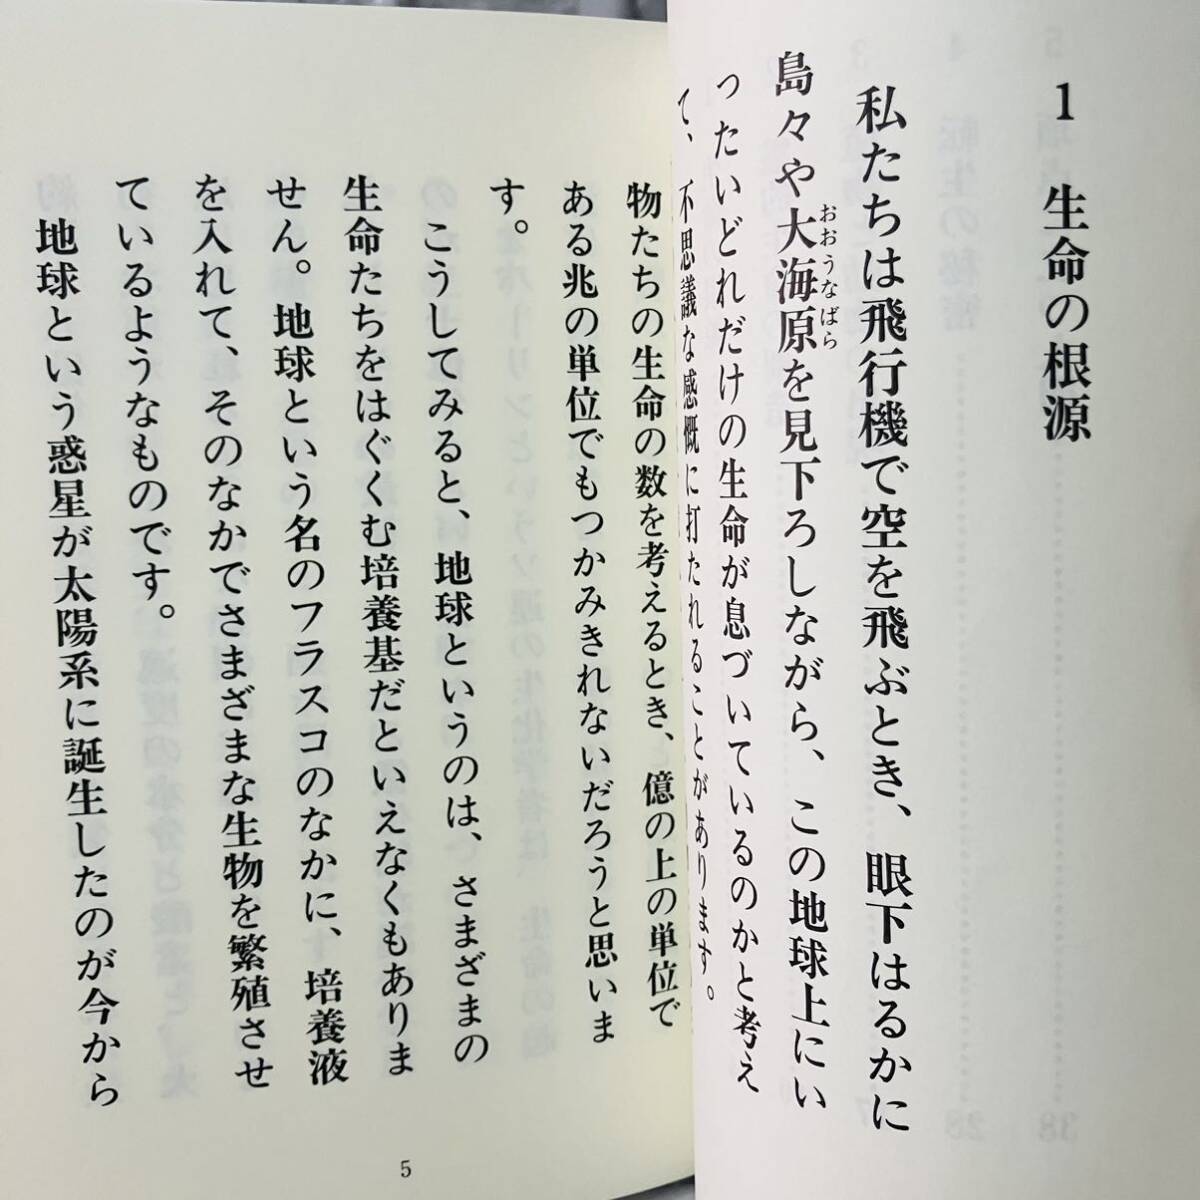 1 生命の根源
私たちは飛行機で空を飛ぶとき、眼下はるかに
島々や大海原を見下ろしながら、この地球上にい
おおうなばら
ったいどれだけの生命が息づいているのかと考え
て、不思議な感慨に打たれることがあります。
物たちの生命の数を考えるとき、億の上の単位で
ある兆の単位でもつかみきれないだろうと思いま
す。
こうしてみると、地球というのは、さまざまの
生命たちをはぐくむ培養基だといえなくもありま
せん。地球という名のフラスコのなかに、培養液
を入れて、そのなかでさまざまな生物を繁殖させ
ているようなものです。
地球という惑星が太陽系に誕生したのが今から
5